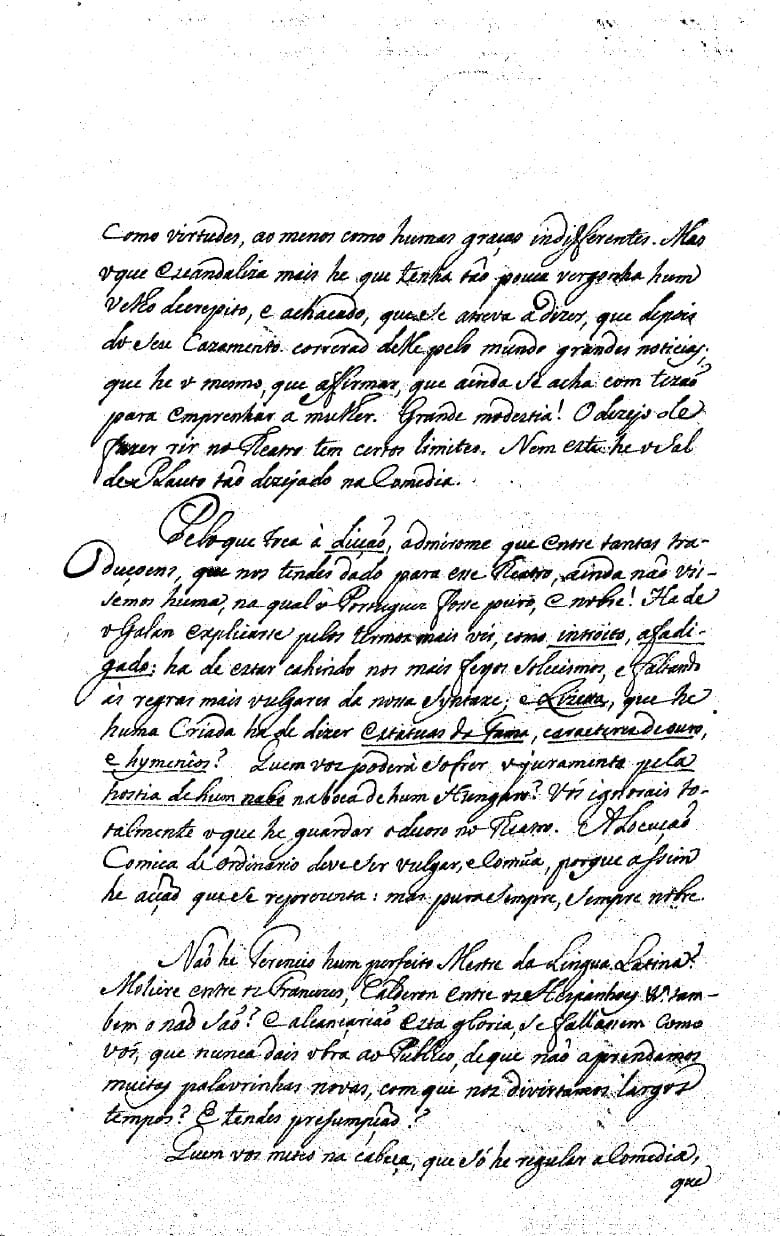 como virtudes, ao menos como humas graças indifferentes. Mas
o que escandaliza mais he que tenha tão pouca vergonha hum
velho decrepito, e achacado, que se atreva a dizer, que depois
do seu Cazamento correraõ delle pelo mundo grandes noticias;
que he o mesmo, que affirmar, que ainda se acha com tezaõ
para emprenhar a mulher. Grande modestia! O dezejo de
fazer rir no Teatro tem certos limites. Nem este he o Sal
de Plauto taõ dezejado na Comedia.
Pelo que toca à dicçaõ, admirome que entre tantas tra-
duçoens, que nos tendes dado para esse Teatro, ainda naõ vis-
semos huma, na qual o Portuguez fosse puro, e nobre! Ha de
o Galan explicarse pelos termos mais vis, como introito, afadi-
gado: ha de estar cahindo nos mais feyos solecismos, e faltando
às regras mais vulgares da nossa Syntaxe; e Lizeta, que he
huma Criada ha de dizer estatuas da Fama, caracteres de ouro,
e hymenêos? Quem vos poderà sofrer o juramento pela
hostia de hum nabo na boca de hum Hungaro? Vós ignorais to-
talmente o que he guardar o decoro no Teatro. A Locuçaõ
Comica de ordinario deve ser vulgar, e comũa, porque assim
he acçaõ que se reprezenta: mas pura sempre, e sempre nobre.
Naõ he Terencio hum perfeito Mestre da Lingua Latina?
Moliere entre os Francezes, Calderon entre os Hespanhoes tam-
bem o naõ saõ? e alcançariaõ esta gloria, se fallassem como
vós, que nunca dais obra ao Publico, de que naõ aprendamos
muitas palavrinhas novas, com que nos divirtamos largos
tempos? E tendes presumpçaõ?
Quem vos meteo na cabeça, que só he regular a Comedia,
que